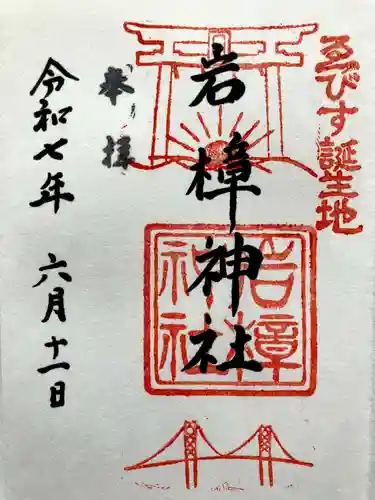 ゑびす誕生地
岩樟神社
奉拝
令和七年 六月十一日
岩樟
神社